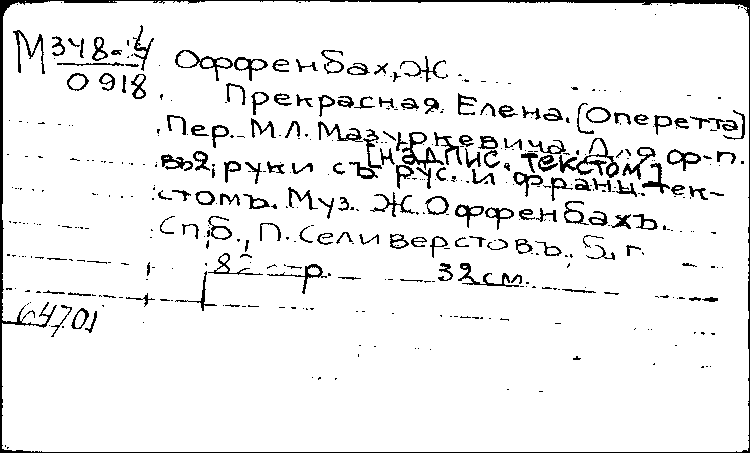 М 348-4
0918
Оффенбах, Ж.
Прекрасная Елена. [Оперетта]
Пер. М.Л. Мазуркевича. Для ф-п.
[надпис. текстом]
въ 2 руки съ рус. и франц. тек-
стомъ. Муз. Ж. Оффенбахъ.
Спб., П. Селиверстовъ, б. г.
р. 32 см.
64701